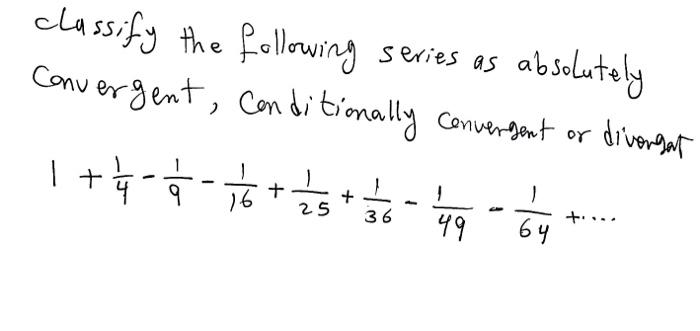 classify the following series as absolutely
Convergent, Conditionally Convergent or divergat
1 + 1/4 - 1/9 - 1/16 + 1/25 + 1/36 - 1/49 - 1/64 + ....